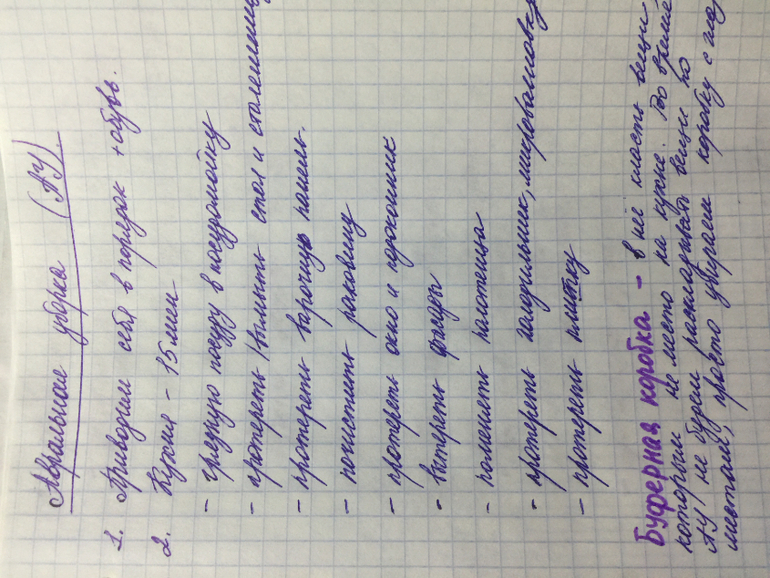 Авральная уборка (АУ)
1. Приводим себя в порядок + обувь.
2. Кухня - 15 мин.
- грязную посуду в посудомойку
- протереть/вымыть стол и столешницу
- протереть варочную панель.
- почистить раковину
- протереть окно и подоконник
- вытереть фасады
- поменять полотенца
- протереть холодильник, микроволновку
- протереть плитку
Буферная коробка - в неё класть вещи
которым не место на кухне. Во время
АУ не будем раскладывать вещи по
местам, просто убираем коробку с